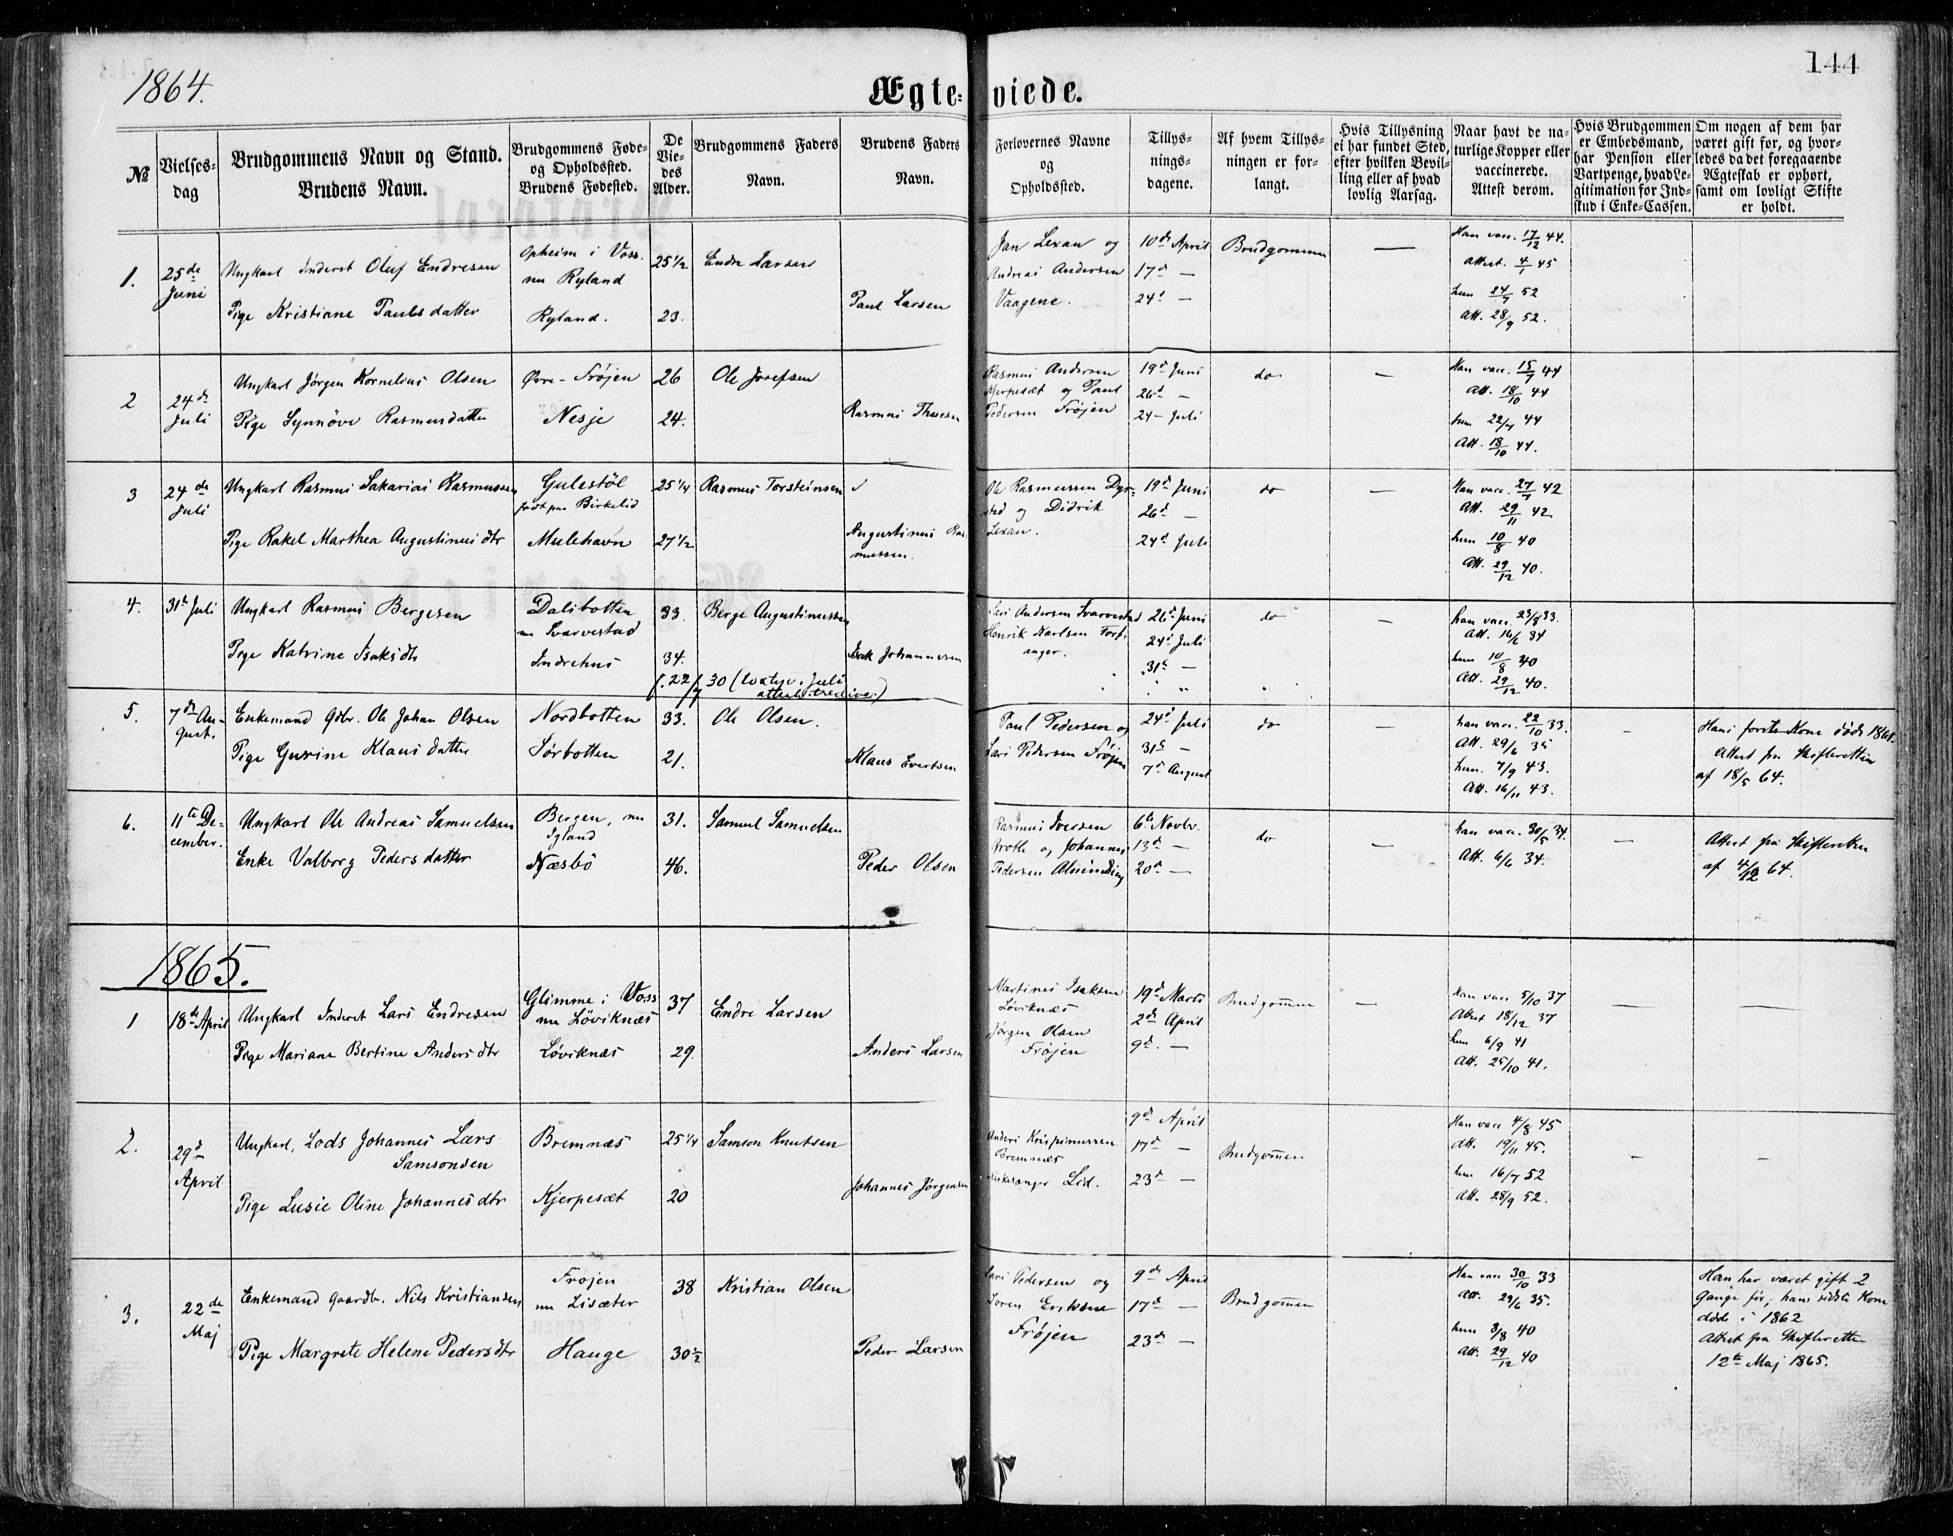 1864.
Ægte-viede.
144
№
Vielses-dag
Brudgommens Navn og Stand.
Brudens Navn.
Brudgommens Føde-
og Opholdssted.
Brudens Fødested.
De
Vie-
des
Alder.
Brudgommens Faders
Navn.
Brudens Faders
Navn.
Forlovernes Navne
og
Opholdssted.
Tillys-
nings-
dagene.
Af hvem Tillys-
ningen er for-
langt.
Hvis Tillysning
ei har fundet Sted,
efter hvilken Bevil-
ling eller af hvad
lovlig Aarsag.
Naar havt de na-
turlige Kopper eller
vaccinerede.
Attest derom.
Hvis Brudgommen
er Embedsmand,
har Pension eller
Vartpenge, hvad Le-
gitimation for Ind-
skud i Enke-Cassen.
Om nogen af dem har
været gift før, og hvor-
ledes da det foregaaende
Ægteskab er ophørt,
samt om lovligt Skifte
er holdt.
1.
25de
Juni
Ungkarl Inderst Oluf Endresen
Pige Kristiane Paulsdatter
Opheim i Voss.
nu Ryland
Ryland.
25 1/2
23.
Endre Larsen
Paul Larsen
Jan Lexau og
Andreas Andersen
Vaagene.
10de April
17d —
24d —
Brudgommen
—
Han vacc. 17/12 44.
Attest. 4/1 45
hun 24/7 52
Att. 28/9 52.
2
24de
Juli
Ungkarl Jørgen Kornelius Olsen
Pige Synnöve Rasmusdatter
Övre-Fröjen
Nesje
26
24.
Ole Josefsen
Rasmus
Rasmus Andersen
Kjerpesæt og Paul
Pedersen Fröjen
19d Juni
26d —
24 — Juli
do
—
Han vacc. 15/7 44
Att. 18/10 44
hun 22/7 44
Att. 18/10 44.
3
24de
Juli
Ungkarl Rasmus Sakarias Rasmussen
Pige Rakel Marthea Augustinusdtr
Gulestöl
født paa Birkelid
Mulehavn
25 1/4
27 1/2
Rasmus Torsteinsen
Augustinus Ras-
mussen.
Ole Rasmussen Dyr-
stad og Didrik
Lexau.
19d Juni
26d —
24d Juli
do
—
Han vacc. 27/7 42
Att. 29/11 42
hun 10/8 40
Att. 29/12 40.
4.
31te Juli
Ungkarl Rasmus Bergesen
Pige Katrine Isaksdtr
Dalsbotten
nu Svarvestad
Indrehus
33.
34.
Berge Augustinussen
Isak Johannesen
f. 22/7 30
Lars Andersen Svarvestad
Henrik Karlsen Torf-
anger.
26d Juni
24d Juli
31te —
do
—
han vacc. 23/8 33.
Att. 16/2 34
hun 10/8 40
Att. 29/12 40.
5.
7de Au-
gust.
Enkemand Gdbr. Ole Johan Olsen
Pige Gurine Klausdatter
Nordbotten
Sörbotten
33.
21.
Ole Olsen.
Klaus Evertsen
Paul Pedersen og
Lars Pedersen Fröjen
24d Juli
31te —
7de August
do
—
han vacc. 22/10 33.
Att. 29/6 35
hun. 7/9 43.
Att. 16/11 43.
—
Hans förste Kone döde 1861.
Attest fra Skifteretten
af 18/5 64.
6.
11te De-
cember.
Ungkarl Ole Andreas Samuelsen
Enke Valborg Pedersdatter
Bergen, nu
Igland
Næsbö
31.
46.
Samuel Samuelsen
Peder Olsen
Rasmus Iversen
Grotle og Johannes
Pedersen Almending
6te Novbr.
13d —
20d —
do
—
han vacc. 30/5 34.
Att. 6/6 34.
—
Attest fra Skifteretten
af 4/12 64.
1865.
1
18de April
Ungkarl Inderst Lars Endresen
Pige Mariane Bertine Andersdtr
Glimme i Voss
nu Löviknæs
Löviknæs
37
29
Endre Larsen
Anders Larsen
Martinus Isaksen
Löviknæs
Jörgen Olsen
Fröjen
19d Marts
2de April
9d. —
Brudgommen
—
Han vacc 5/10 37
Attest 18/12 37
hun 6/9 41
Att. 25/10 41.
—
—
2.
29d
April
Ungkarl, Lods Johannes Lars
Samsonsen
Pige Lusie Oline Johannesdtr
Bremnæs
Kjerpesæt
25 1/4
20
Samson Knutsen
Johannes Jørgensen
Anders Krispinussen
Bremnæs
Lid.
9de April
17d —
23d —
Brudgommen
Han vacc 4/8 45
Att. 19/11 45.
hun 16/7 52
Att. 28/9 52.
—
—
3.
22de
Maj
Enkemand Gaardbr. Nils Kristiansen
Pige Margrete Helene Pedersdtr
Fröjen
nu Lisæter
Hauge
38
30 1/2
Kristian Olsen
Peder Larsen
Lars Pedersen og
Soren Eriksen
Fröjen
9de April
17d —
23de —
Brudgommen
Han vacc 30/10 33
Att. 29/6 35.
hun 3/8 40
Att. 29/12 40
Han har været gift 2
Gange för; hans sidste Kone
döde i 1862
Attest fra Skifteretten
12te Maj 1865.